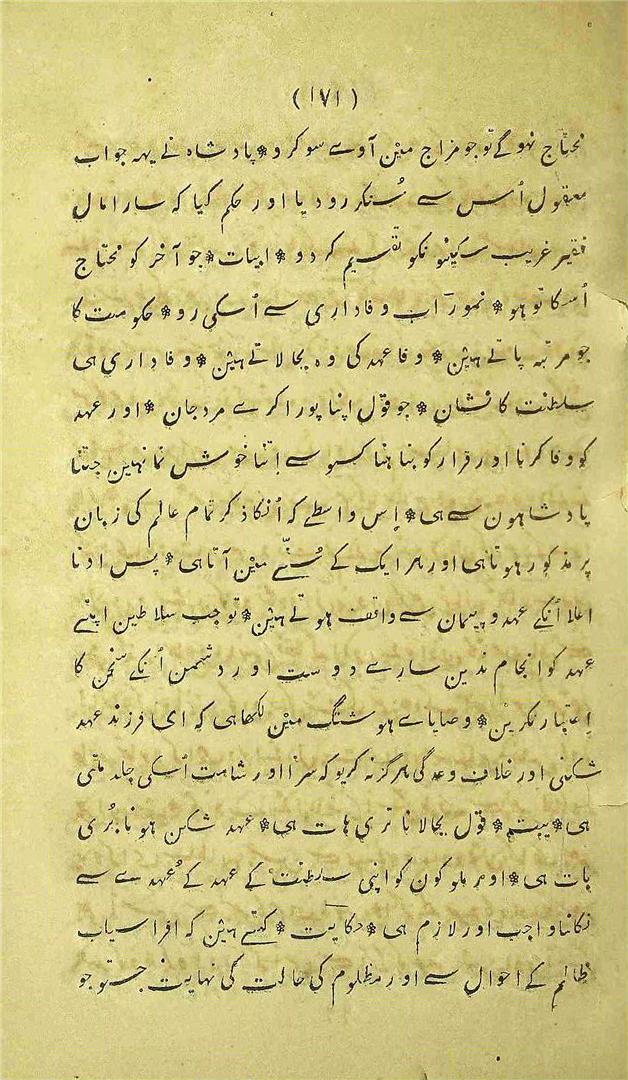 (۱۷۱)
محتاج نہوگے تو جو مزاج میں آوے سو کرو * پادشاہ نے یہہ جواب
معقول اُس سے سُنکر رو دیا اور حکم کیا کہ سارا مال
فقیر غریب مسکینونکو تقسیم کر دو * ابیات * جو آخر کو محتاج
اُسکا تو ہو * نمور آب وفاداری سے اُسکی رو * حکومت کا
جو مرتبہ پاتے ہیں * وفا عہد کی وہ بجالاتے ہیں * وفاداری ہی
سلطنت کا نشان * جو قول اپنا پورا کرے مرد جان * اور عہد
کو وفا کرنا اور قرار کو بناہنا کسو سے اِتنا خوش نما نہیں جتنا
پادشاہون سے ہی * اِس واسطے کہ اُنکا ذکر تمام عالم کی زبان
پر مذکور ہوتا ہی اور ہر ایک کے سُنّے میں آتا ہی * پس ادنا
اعلا اُنکے عہد و پیمان سے واقف ہوتے ہیں * تو جب سلاطین اپنے
عہد کو انجام ندین سارے دوست اور دشمن اُنکے سخن کا
اِعتبار نکریں * وصایاے ہوشنگ میں لکھا ہی کہ ای فرزند عہد
شکنی اور خلاف وعدگی ہرگز نہ کریو کہ سزا اور شامت اُسکی جلد ملتی
ہی * بیت * قول بجالانا تری ہات ہی * عہد شکن ہونا بُری
بات ہی * اور ملوکون کو اپنی سلطنت کے عہد کے عُہدے سے
نکلنا واجب اور لازم ہی * حکایت * کہتے ہیں کہ افراسیاب
ظالم کے احوال سے اور مظلوم کی حالت کی نہایت جستوجو